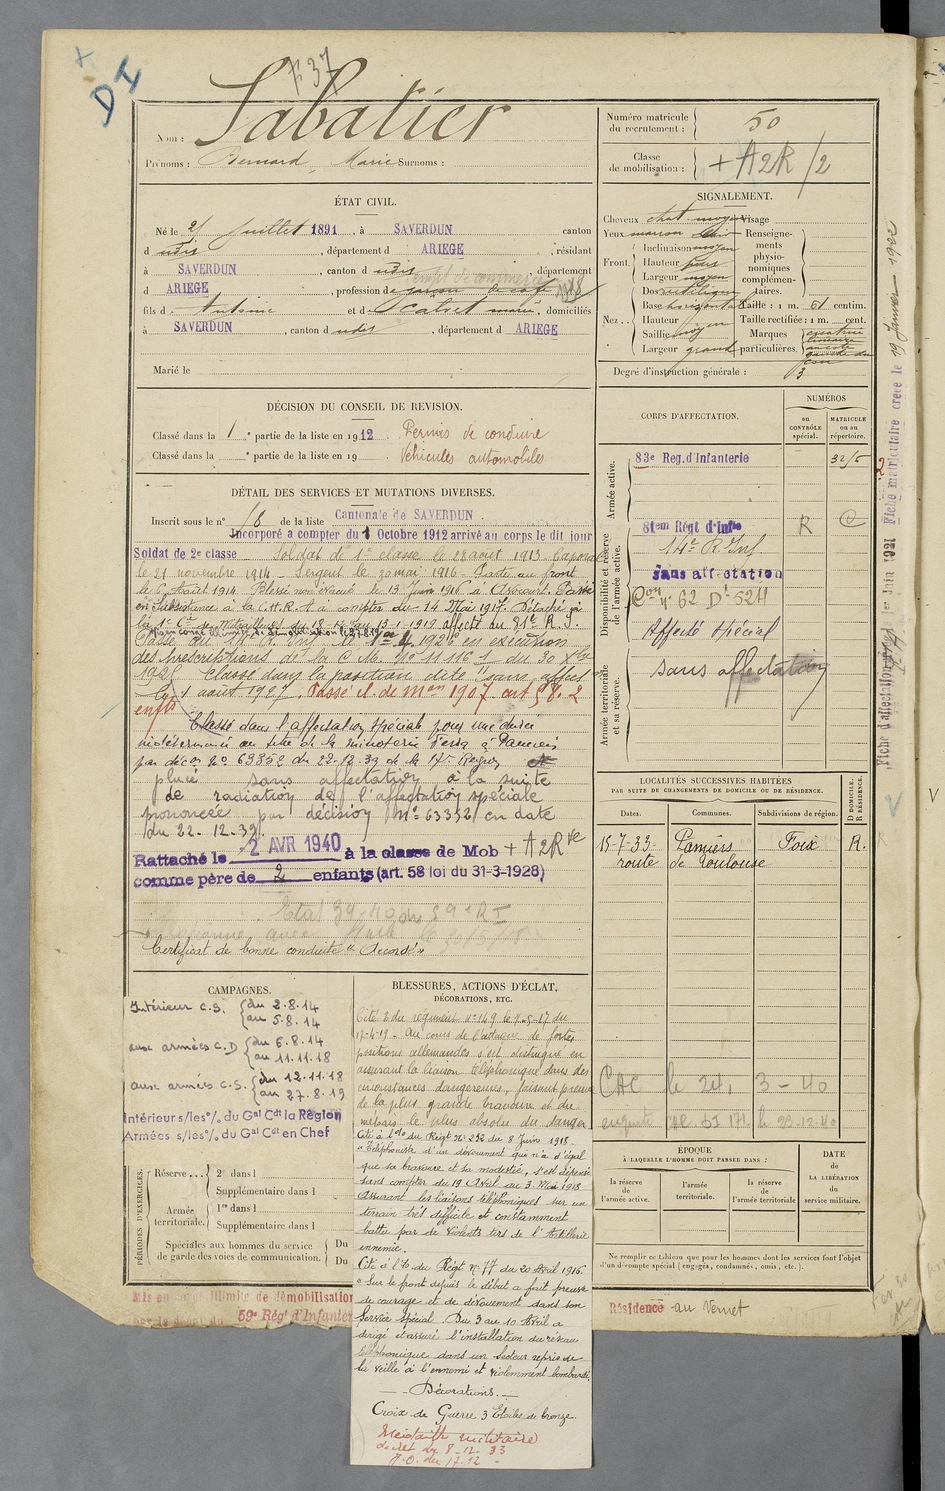 D I
F 37
Nom : Sabatier
Prénoms : Bernard Marie Surnoms :
Numéro matricule du recrutement : 50
Classe de mobilisation : + A2R/2
ÉTAT CIVIL.
Né le 25 Juillet 1891, à SAVERDUN canton
d udit, département d ARIEGE, résidant
à SAVERDUN, canton d udit, département
d ARIEGE, profession d e garçon de café
employé de commerce 1918
fils d Antoine et d Calvet marie, domiciliés
à SAVERDUN, canton d udit, département d ARIEGE
Marié le
SIGNALEMENT.
Cheveux chat-moyen Visage
Yeux marron clair
Front. Inclinaison moyen
Hauteur
Largeur moyen
Nez. Dos rectiligne
Base horizontal
Hauteur
Saillie moyen
Largeur grand
Renseignements physionomiques complémentaires.
Taille : 1 m. 61 centim.
Taille rectifiée : 1 m. cent.
Marques particulières. cicatrice linéaire
Degré d'instruction générale : 3
DÉCISION DU CONSEIL DE REVISION.
Classé dans la 1e partie de la liste en 1912. Permis de conduire
Classé dans la e partie de la liste en 19 . Véhicules automobiles
DÉTAIL DES SERVICES ET MUTATIONS DIVERSES.
Inscrit sous le n° 18 de la liste Cantonale de SAVERDUN
Incorporé a compter du 1 Octobre 1912 arrivé au corps le dit jour
Soldat de 2e classe Soldat de 1e classe le 28 août 1913. Caporal
le 21 novembre 1914 - Sergent le 30 mai 1916 - Parti au front
le 6 Août 1914. Blessé non évacué le 13 Juin 1916 à Avocourt. Passé
en Subsistance à la C.H.R. A à compter du 14 Mai 1917. Détaché
affecté au 81e R. I.
Passé au 14e R. Inf. le 1926 en exécution
des prescriptions de la C. M. N° 11.116 1 du 30 Xbre
1925 Classé dans la position dite "sans affect
" 1 août 1927. Passé cl de Mon 1907 art 58. 2
enfts
Classé dans l'affectation spéciale pour une durée
indéterminée au titre de la minoterie à Pamiers
par décon N° 63352 du 22-12-39 de la 17e Région
placé sans affectation à la suite
de radiation de l'affectation spéciale
prononcée par décision N° 63352 en date
du 22-12-39.
Rattaché le 2 AVR 1940 à la classe de Mob + A2R
comme père de 2 enfants (art. 58 loi du 31-3-1928)
Certificat de bonne conduite "Accordé"
CORPS D'AFFECTATION.
NUMÉROS
au CONTRÔLE spécial.
MATRICULE ou au répertoire.
Armée active.
83e Reg. d'Infanterie
Disponibilité et réserve de l'armée active.
81em Régt d'Infie R C
14e R Inf
Sans affectation
Con N° 62 Dt 5211
Affecté spécial
Armée territoriale et sa réserve.
sans affectation
Fiche matriculaire créée le 19 Janvier 1922
LOCALITÉS SUCCESSIVES HABITÉES
PAR SUITE DE CHANGEMENTS DE DOMICILE OU DE RÉSIDENCE.
Dates. Communes. Subdivisions de région. D DOMICILE. R RÉSIDENCE.
15-7-33 Pamiers Foix R.
route de Toulouse
CAC le 24, 3-40
CAMPAGNES.
Intérieur C.S. du 2.8.14
au 5.8.14
aux armées C.D du 6.8.14
au 11.11.18
aux armées C.S. du 12.11.18
au 27.8.19
Intérieur s/les °/. du Gal Cdt la Région
Armées s/les °/. du Gal Cdt en Chef
PÉRIODES D'EXERCICES.
Réserve... 2e dans l
Supplémentaire dans l
Armée territoriale. 1re dans l
Supplémentaire dans l
Spéciales aux hommes du service de garde des voies de communication. Du
Du
Mis en congé illimité de démobilisation
59e Régt d'Infanterie
BLESSURES, ACTIONS D'ÉCLAT,
DÉCORATIONS, ETC.
Cité à l'o du régiment N° 149 le 9-5-17 du
17-4-19. Au cours de l'attaque de fortes
positions allemandes s'est distingué en
assurant la liaison téléphonique dans des
circonstances dangereuses, faisant preuve
de la plus grande bravoure et du
mépris le plus absolu du danger
Cité à l'o du Régt N° 232 du 8 Juin 1918.
"Téléphoniste d'un dévouement qui n'a d'égal
que sa bravoure et sa modestie, s'est dépensé
sans compter du 19 Avril au 3 Mai 1918
Assurant les liaisons téléphoniques sur un
terrain très difficile et constamment
battu par de violents tirs de l'Artillerie
ennemie.
Cité à l'o du Régt N° 77 du 20 Avril 1916.
"Sur le front depuis le début a fait preuve
de courage et de dévouement dans son
Service spécial. Du 3 au 10 Avril a
dirigé et assuré l'installation du réseau
téléphonique dans un Secteur repris de
la veille à l'ennemi et violemment bombardé.
Décorations.
Croix de Guerre 3 Etoiles de bronze.
Médaille militaire
décret du 8-12-33
J.O. du 17.12
ÉPOQUE
À LAQUELLE L'HOMME DOIT PASSER DANS :
la réserve de l'armée active.
l'armée territoriale.
la réserve de l'armée territoriale
DATE DE LA LIBÉRATION du service militaire.
Ne remplir ce tableau que pour les hommes dont les services font l'objet
d'un décompte spécial (engagés, condamnés, omis, etc.).
Résidence au Vernet